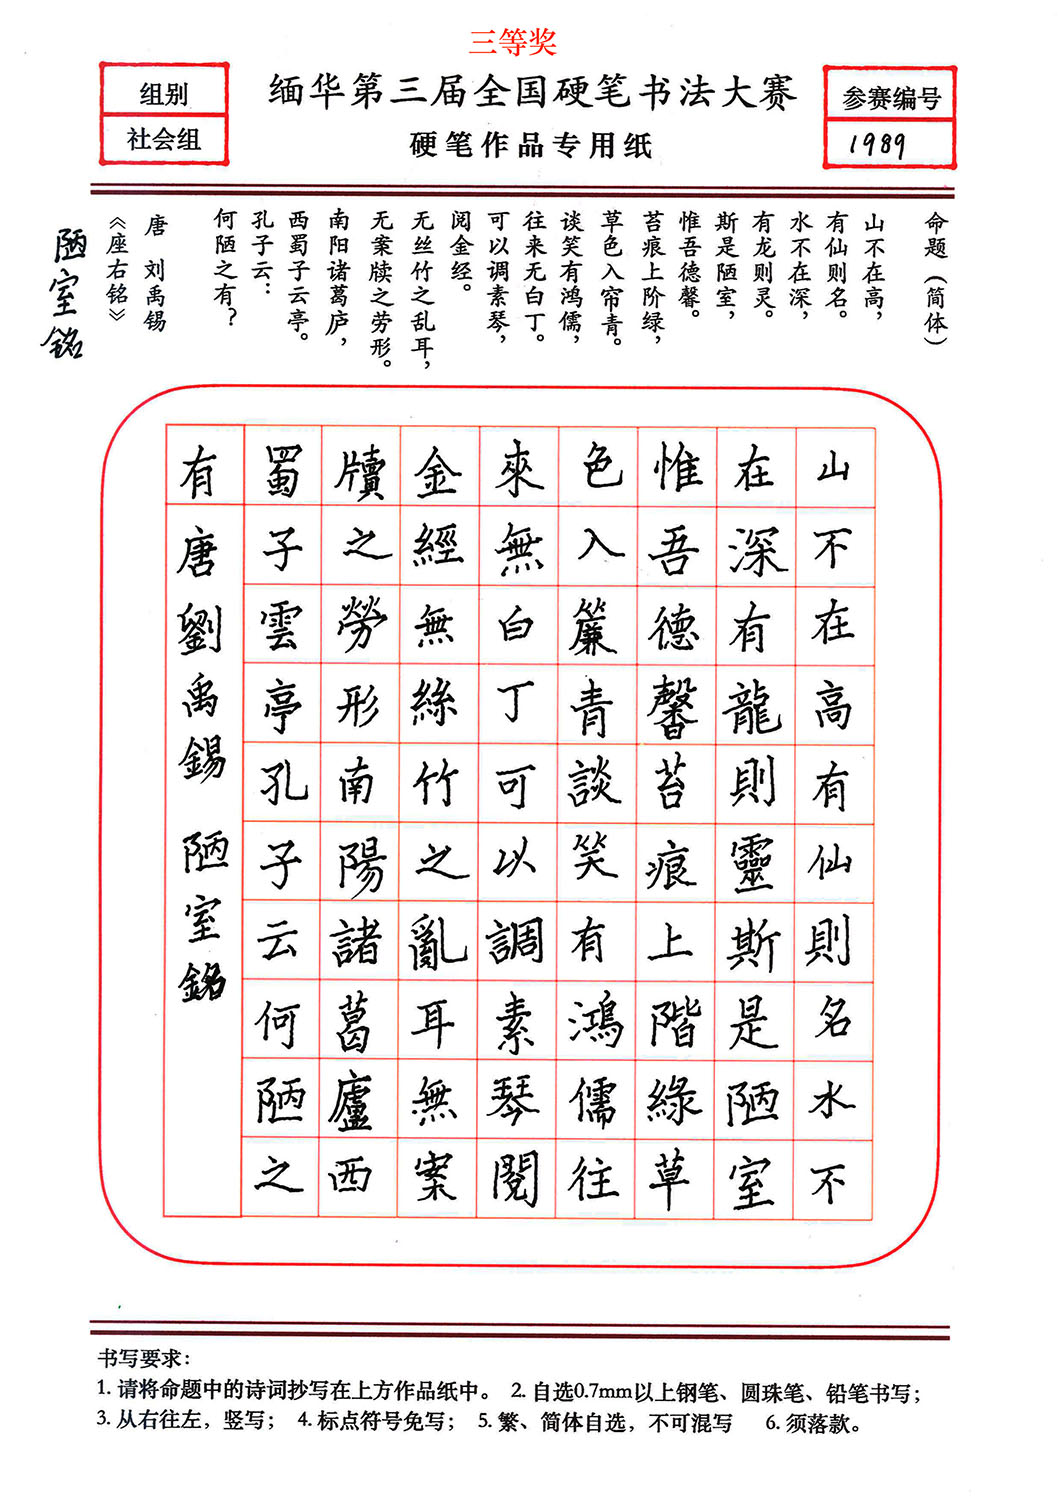 三等奖
组别
社会组
缅华第三届全国硬笔书法大赛
硬笔作品专用纸
参赛编号
1989
命题（简体）
山不在高，
有仙则名。
水不在深，
有龙则灵。
斯是陋室，
惟吾德馨。
苔痕上阶绿，
草色入帘青。
谈笑有鸿儒，
往来无白丁。
可以调素琴，
阅金经。
无丝竹之乱耳，
无案牍之劳形。
南阳诸葛庐，
西蜀子云亭。
孔子云：
何陋之有？
唐 刘禹锡
《座右铭》
陋室銘
山不在高有仙則名水不
在深有龍則靈斯是陋室
惟吾德馨苔痕上階綠草
色入簾青談笑有鴻儒往
來無白丁可以調素琴閱
金經無絲竹之亂耳無案
牘之勞形南陽諸葛廬西
蜀子雲亭孔子云何陋之
有
唐劉禹錫 陋室銘
书写要求：
1. 请将命题中的诗词抄写在上方作品纸中。 2. 自选0.7mm以上钢笔、圆珠笔、铅笔书写；
3. 从右往左，竖写； 4. 标点符号免写； 5. 繁、简体自选，不可混写 6. 须落款。